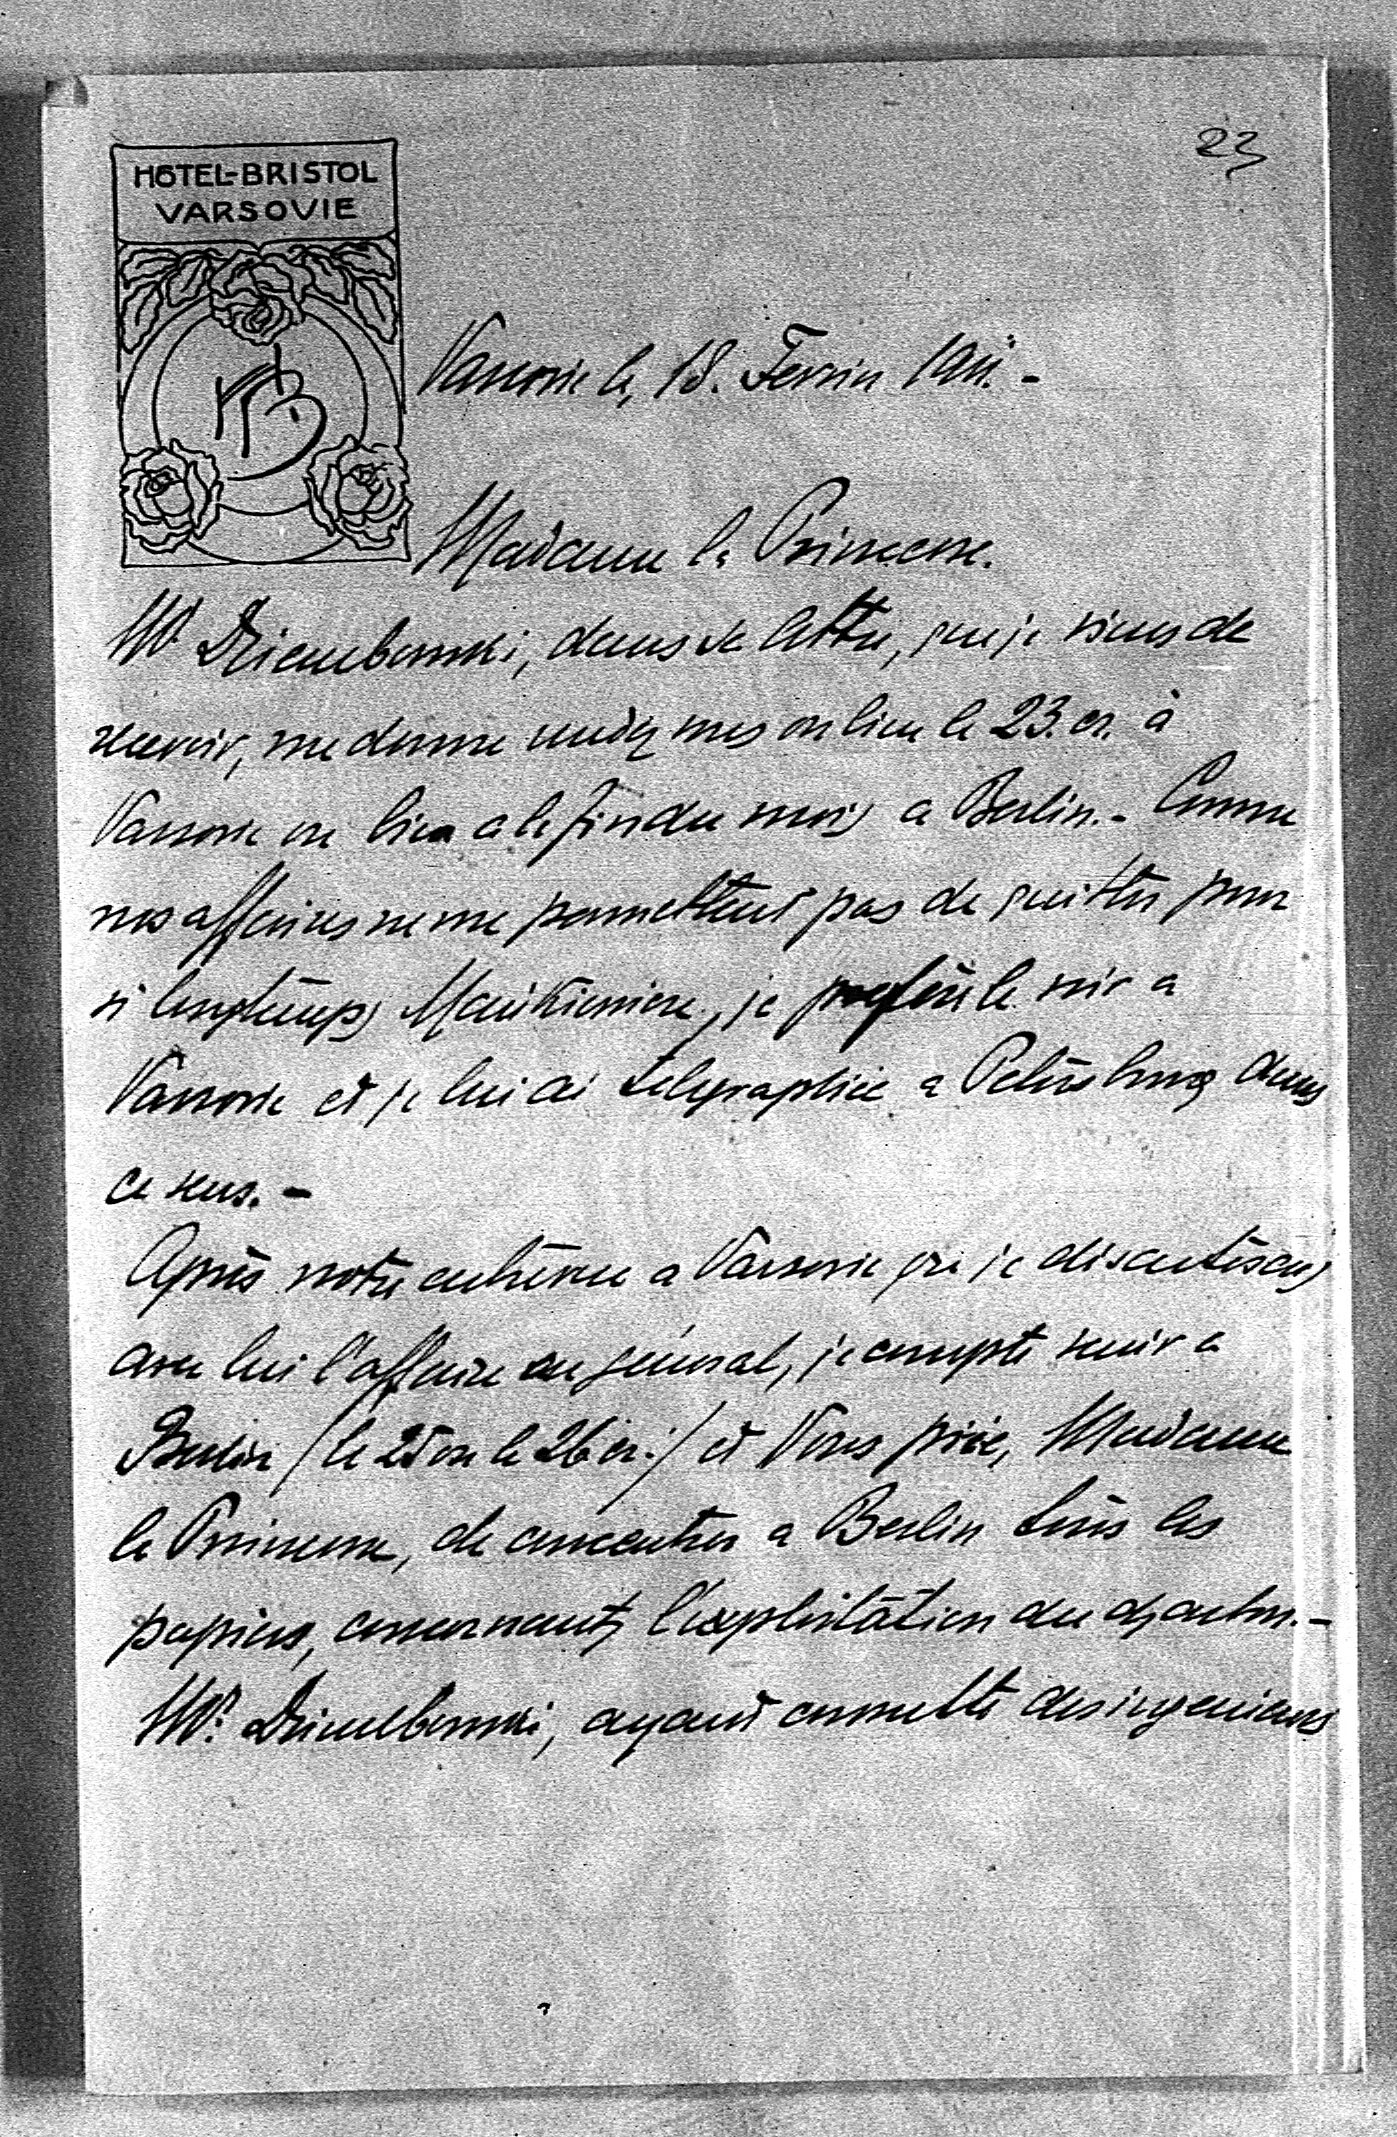 23
HÔTEL-BRISTOL
VARSOVIE
Varsovie le, 18. Fevrier 1911. -
Madame la Princesse.
Mr Dziembowski, dans sa lettre, que je viens de
recevoir, me donne rendez vous ou bien le 23. cr. à
Varsovie ou bien a la fin du mois a Berlin. - Comme
nos affaires ne me permettent pas de quitter pour
si longtemps Mańkiewicze, je prefere le voir a
Varsovie et je lui ai telegraphié a Petersbourg dans
ce sens. -
Après notre entrevue a Varsovie que je discuterais
avec lui l'affaire en général, je compte venir a
Berlin /le 25 ou le 26 cr./ et Vous prie, Madame
la Princesse, de concentrer a Berlin tous les
papiers, concernants l'exploitation du
Mr. Dziembowski, ayant consulté des ingenieurs